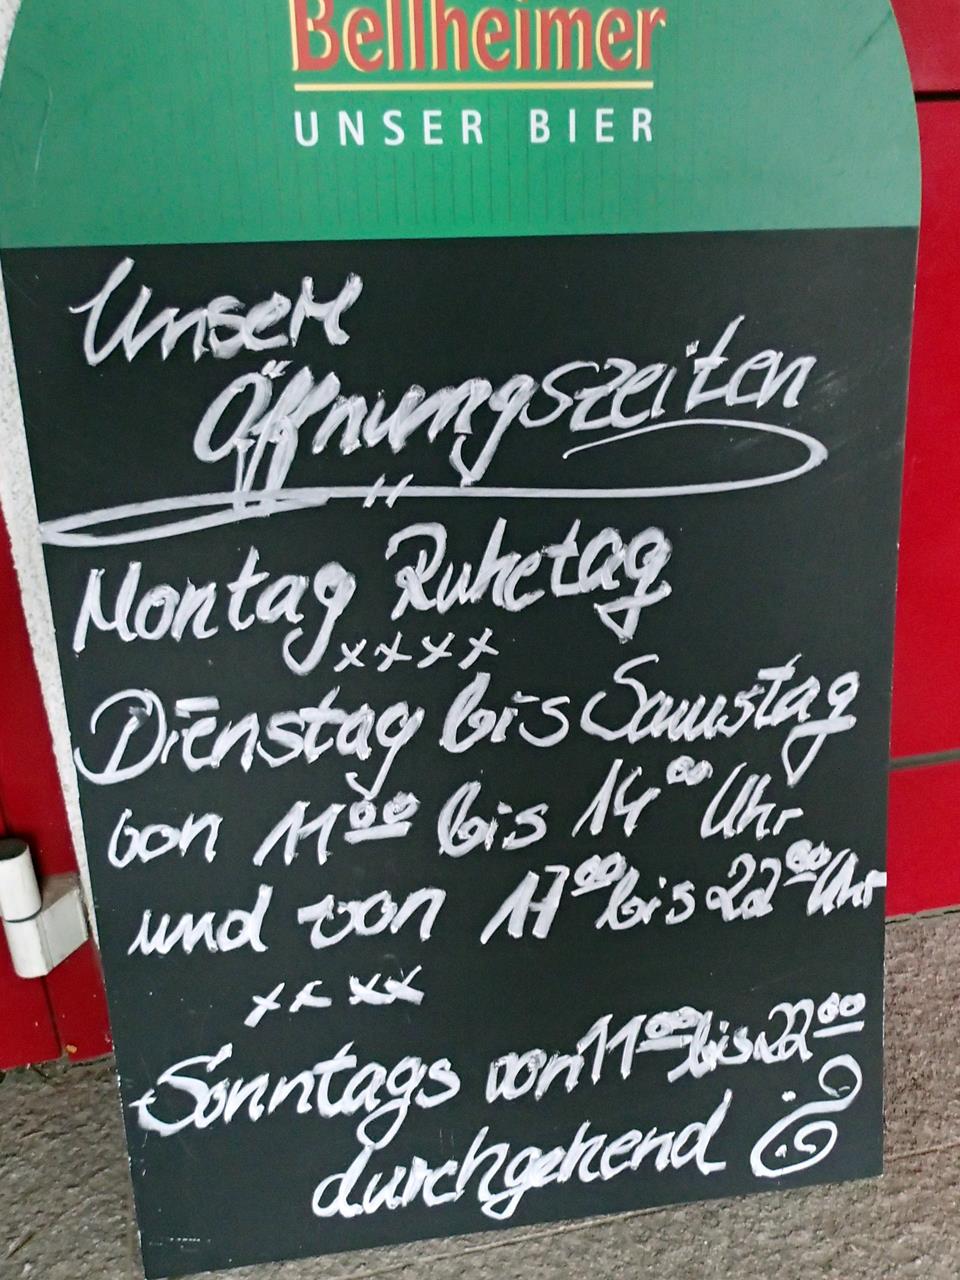 Bellheimer
UNSER BIER
Unsere
Öffnungszeiten
Montag Ruhetag
xxxx
Dienstag bis Samstag
von 11⁰⁰ bis 14⁰⁰ Uhr
und von 17⁰⁰ bis 22⁰⁰ Uhr
xxxx
Sonntags von 11⁰⁰ bis 22⁰⁰
durchgehend